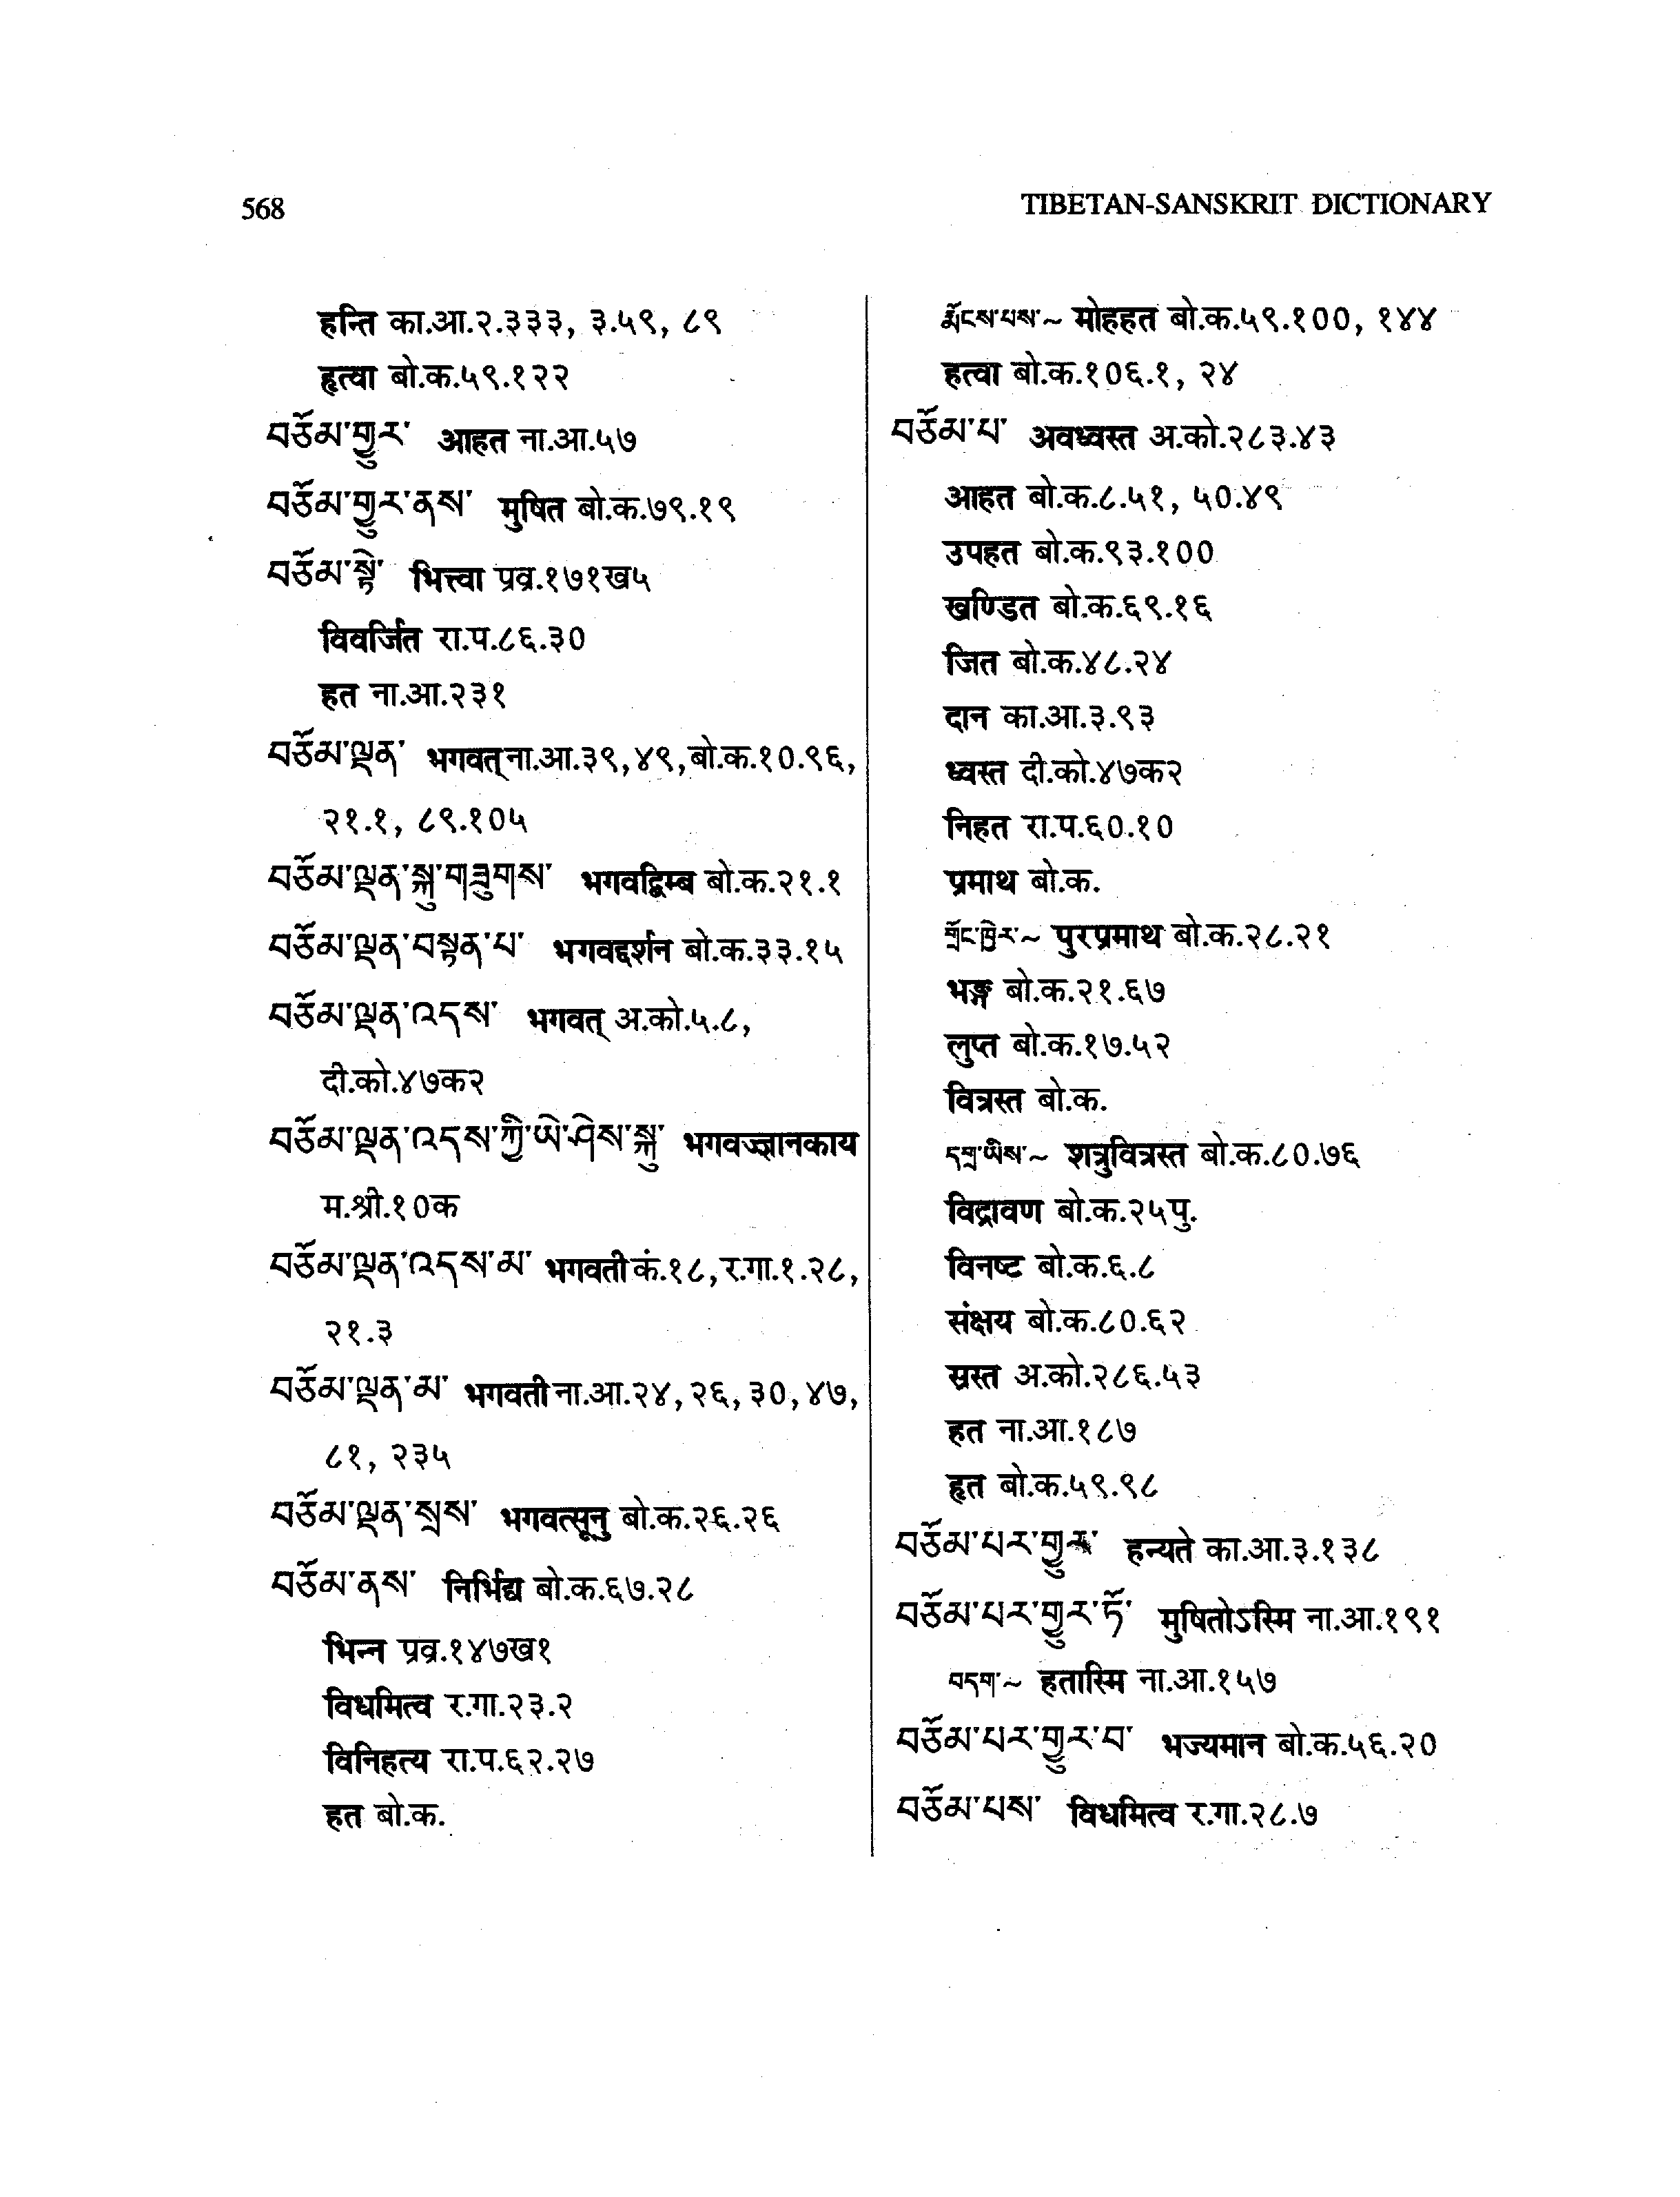 568
TIBETAN-SANSKRIT DICTIONARY
हन्ति का.आ.२.३३३, ३.५९, ८९
हृत्वा बो.क.५९.१२२
བཅོམ་གྱུར་ आहत ना.आ.५७
བཅོམ་གྱུར་ནས་ मुषित बो.क.७९.१९
བཅོམ་སྟེ་ भित्त्वा प्रव्र.१७१ख५
विवर्जित रा.प.८६.३०
हत ना.आ.२३१
བཅོམ་ལྡན་ भगवत् ना.आ.३९, ४९, बो.क.१०.९६,
२१.१, ८९.१०५
བཅོམ་ལྡན་སྐུ་གཟུགས་ भगवद्बिम्ब बो.क.२१.१
བཅོམ་ལྡན་བསྟན་པ་ भगवद्दर्शन बो.क.३३.१५
བཅོམ་ལྡན་འདས་ भगवत् अ.को.५.८,
दी.को.४७क२
བཅོམ་ལྡན་འདས་ཀྱི་ཡེ་ཤེས་སྐུ་ भगवज्ज्ञानकाय
म.श्री.१०क
བཅོམ་ལྡན་འདས་མ་ भगवती कं.१८, र.गा.१.२८,
२१.३
བཅོམ་ལྡན་མ་ भगवती ना.आ.२४, २६, ३०, ४७,
८१, २३५
བཅོམ་ལྡན་སྲས་ भगवत्सूनु बो.क.२६.२६
བཅོམ་ནས་ निर्भिद्य बो.क.६७.२८
भिन्न प्रव्र.१४७ख१
विधमित्व र.गा.२३.२
विनिहत्य रा.प.६२.२७
हत बो.क.
རྨོངས་པས་~ मोहहत बो.क.५९.१००, १४४
हत्वा बो.क.१०६.१, २४
བཅོམ་པ་ अवध्वस्त अ.को.२८३.४३
आहत बो.क.८.५१, ५०.४९
उपहत बो.क.९३.१००
खण्डित बो.क.६९.१६
जित बो.क.४८.२४
दान का.आ.३.९३
ध्वस्त दी.को.४७क२
निहत रा.प.६०.१०
प्रमाथ बो.क.
གྲོང་ཁྱེར་~ पुरप्रमाथ बो.क.२८.२१
भङ्ग बो.क.२१.६७
लुप्त बो.क.१७.५२
वित्रस्त बो.क.
དགྲ་ཡིས་~ शत्रुवित्रस्त बो.क.८०.७६
विद्रावण बो.क.२५पु.
विनष्ट बो.क.६.८
संक्षय बो.क.८०.६२
स्रस्त अ.को.२८६.५३
हत ना.आ.१८७
हृत बो.क.५९.९८
བཅོམ་པར་གྱུར་ हन्यते का.आ.३.१३८
བཅོམ་པར་གྱུར་ཏོ་ मुषितोऽस्मि ना.आ.१९१
བདག་~ हतास्मि ना.आ.१५७
བཅོམ་པར་གྱུར་བ་ भज्यमान बो.क.५६.२०
བཅོམ་པས་ विधमित्व र.गा.२८.७